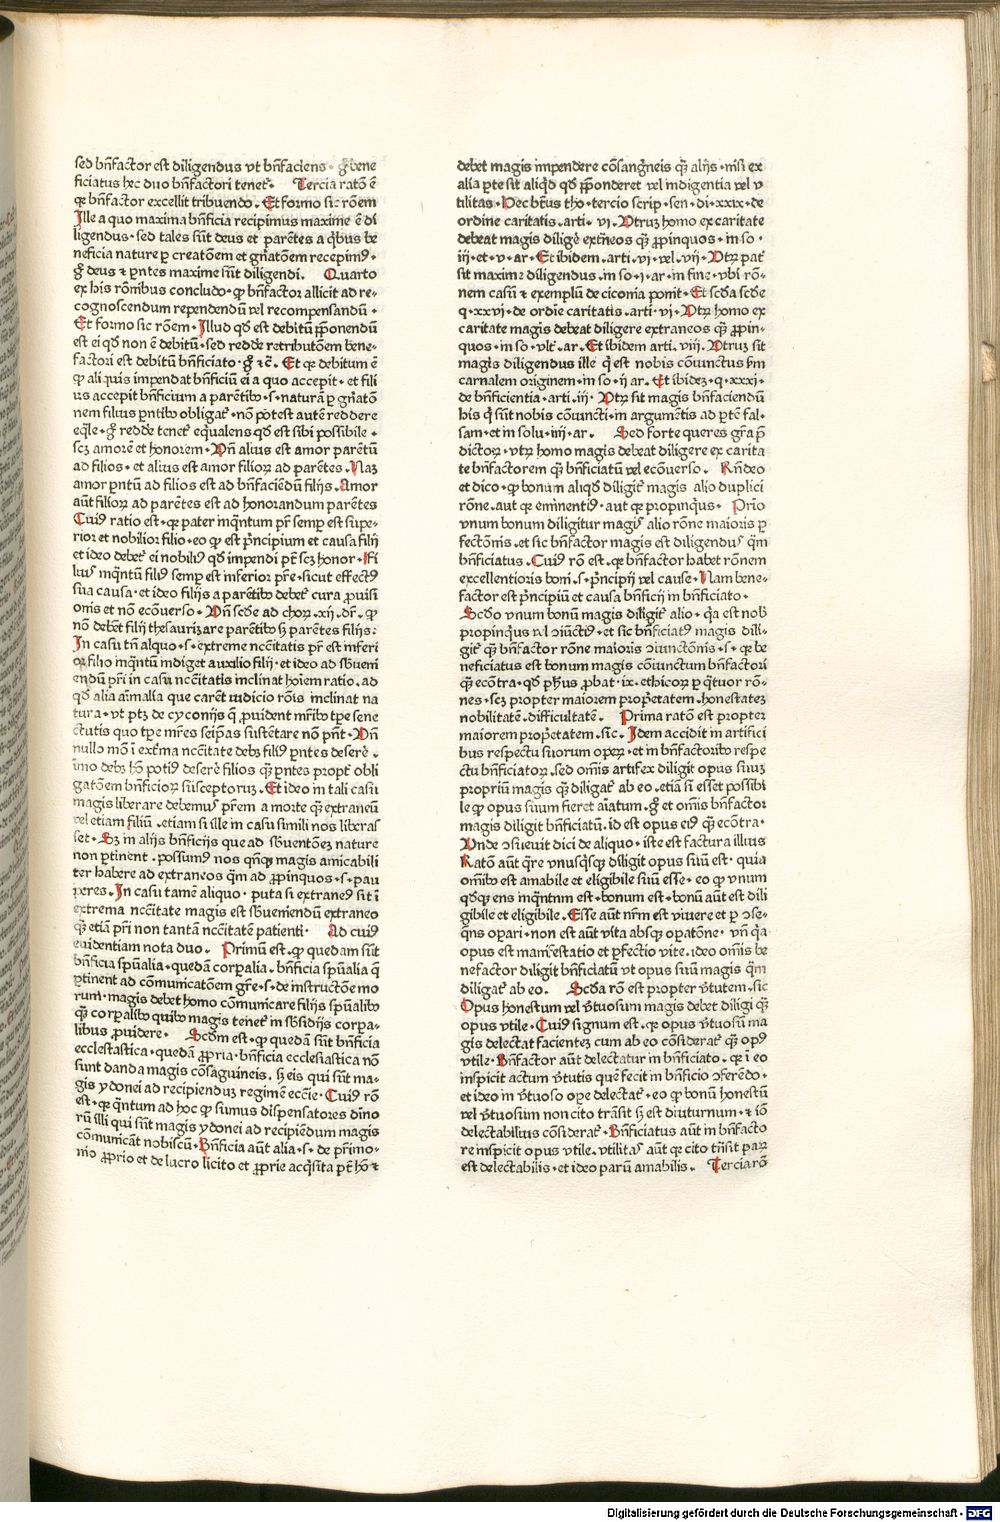 sed bn̄factor est diligendus vt bn̄faciens · g̊ bene
ficiatus hec duo bn̄factori tenet᷑ · Tercia ratō ē
qꝛ bn̄factor excellit tribuendo · Et formo sic rōem
Ille a quo maxima bn̄ficia recipimus maxime ē di
ligendus · sed tales sūt deus et parētes a qͥbus be
neficia nature ꝑ creatōem et gn̄atōem recepimꝰ ·
g̊ deus ⁊ pn̄tes maxime sūt diligendi · Quarto
ex his rōnibus concludo · ꝙ bn̄factor allicit ad re-
cognoscendum rependendū vel recompensandū ·
Et formo sic rōem · Illud qd̄ est debitū p̄ponendū
est ei qd̄ non ē debitū · sed redde retributōem bene-
factori est debitū bn̄ficiato · g̊ ⁊c̄ · Et qꝛ debitum ē
ꝙ aliquis impendat bn̄ficiū ei a quo accepit · et fili
us accepit bn̄ficium a parētibꝰ · s · naturā ꝑ gn̄atō
nem filius pn̄tibꝰ obligat᷑ · nō pōtest autē reddere
eq̄le · g̊ redde tenet᷑ eq̄ualens qd̄ est sibi possibile ·
scꝫ amorē et honorem · Un̄ alius est amor parētū
ad filios · et alius est amor filioꝝ ad parētes · Naꝫ
amor pn̄tū ad filios est ad bn̄faciēdū filijs · Amor
aūt filioꝝ ad parētes est ad honorandum parētes
Cuiꝰ ratio est · qꝛ pater inqͣntum pr̄ semꝑ est supe-
rior et nobilior filio · eo ꝙ est pͥncipium et causa filij
et ideo debet᷑ ei nobiliꝰ qd̄ impendi pt̄ scꝫ honor · Fi
liuꝰ inqͣntū filiꝰ semꝑ est inferior pr̄e · sicut effectꝰ
sua causa · et ideo filijs a parētibꝰ debet᷑ cura ꝓuisi
onis et nō ecōuerso · Un̄ scd̄e ad choꝝ · xij · dr̄ · ꝙ
nō debēt filij thesaurizare parētibꝰ sꝫ parētes filijs :
In casu tn̄ alquo · s · extreme nc̄citatis pr̄ est inferi
or filio inqͣntū indiget auxilio filij · et ideo ad sb̄ueni
endū pr̄i in casu nc̄citatis inclinat hoīem ratio · ad
qd̄ alia aīmalia que carēt iudicio rōis inclinat na
tura · vt ptꝫ de cyconijs q̄ ꝓuident mr̄ibꝰ tꝑe sene
ctutis quo tꝑe mr̄es seip̄as sustētare nō pn̄t · Un̄
nullo mō ī extͤma nc̄citate debꝫ filiꝰ pn̄tes deserē ·
īmo debꝫ hō potiꝰ deserē filios qͣꝫ pn̄tes propt᷑ obli
gatōem bn̄ficioꝝ susceptoruꝫ · Et ideo in tali casu
magis liberare debemuꝰ pr̄em a morte qͣꝫ extraneū
vel etiam filiū · etiam si ille in casu simili nos liberas
set · Sꝫ in alijs bn̄ficijs que ad sb̄uentōeꝫ nature
non ꝑtinent · possumꝰ nos qn̄qꝫ magis amicabili
ter habere ad extraneos qͣm ad ꝓpinquos · s · pau
peres · In casu tamē aliquo · puta si extraneꝰ sit ī
extrema nc̄citate magis est sb̄ueniendū extraneo
qͣꝫ etiā pr̄i non tantā nc̄citatē patienti · Ad cuiꝰ
euidentiam nota duo · Primū est · ꝙ quedam sūt
bn̄ficia spūalia · quedā corꝑalia · bn̄ficia spūalia q̄
ꝑtinent ad cōmunicatōem gr̄e · s · de instructōe mo
rum · magis debet homo cōmunicare filijs spūalibꝰ
qͣꝫ corꝑalibꝰ quibꝰ magis tenet᷑ in sb̄sidijs corꝑa-
libus ꝓuidere · Scd̄m est · ꝙ quedā sūt bn̄ficia
ecclesiastica · quedā ꝓpria · bn̄ficia ecclesiastica nō
sunt danda magis cōsaguineis · sꝫ eis qui sūt ma-
gis ydonei ad recipienduꝫ regimē eccīe · Cuiꝰ rō
est · qꝛ qͣntum ad hoc ꝙ sumus dispensatores diuino
rū illi qui sūt magis ydonei ad recipiēdum magis
cōmunicāt nobiscū · Bn̄ficia aūt alia · s · de pr̄imo-
nio ꝓprio et de lucro licito et ꝓprie acqͥsita pt̄ hō ⁊
debet magis impendere cōsang̊neis qͣꝫ alijs · nisi ex
alia ꝑte sit aliqͥd qd̄ p̄ponderet vel indigentia vel v
tilitas · Hec bt̄us tho · tercio scrip · sen · di · xxix · de
ordine caritatis · arti · vj · Utruꝫ homo ex caritate
debeat magis diligē extͣneos qͣꝫ ꝓpinquos · in so ·
iij · et · v · ar · Et ibidem · arti · vj · vel · vij · Utꝝ pat᷑
sit maxime diligendus · in so · i · ar · in fine · vbi rō-
nem casū ⁊ exemplū de ciconia ponit · Et scd̄a scd̄e
q · xxvi · de ordīe caritatis · arti · vj · Utꝝ homo ex
caritate magis debeat diligere extraneos qͣꝫ ꝓpin-
quos · in so · vlt᷑ · ar · Et ibidem arti · viij · Utruꝫ sit
magis diligendus ille q̇ est nobis cōiunctus scd̄m
carnalem originem · in so · ij ar · Et ibideꝫ · q · xxxj ·
de bn̄ficientia · arti · iij · Utꝝ sit magis bn̄faciendū
his q̇ sūt nobis cōiuncti · in argumētis ad ꝑtē fal-
sam · et in solu · iiij · ar · Sed forte queres gr̄a p̄
dictoꝝ · vtꝝ homo magis debeat diligere ex carita
te bn̄factorem qͣꝫ bn̄ficiatū vel ecōuerso · Rn̄deo
et dico · ꝙ bonum aliqd̄ diligit᷑ magis alio duplici
rōne · aut qꝛ eminentiꝰ · aut qꝛ propinqͥus · Prīo
vnum bonum diligitur magis alio rōne maioris ꝑ
fectōnis · et sic bn̄factor magis est diligenduꝰ qͣm
bn̄ficiatus · Cuiꝰ rō est · qꝛ bn̄factor habet rōnem
excellentioris boni · s · pͥncipij vel cause · Nam bene-
factor est pͥncipiū et causa bn̄ficij in bn̄ficiato ·
Scd̄o vnum bonū magis diligit᷑ alio · qͥa est nob̄
propinqͥus vel ɔiūctiꝰ · et sic bn̄ficiatꝰ magis dili-
git᷑ qͣꝫ bn̄factor rōne maioris ɔiunctōnis · s · qꝛ be
neficiatus est bonum magis cōiunctum bn̄factori
qͣꝫ ecōtra · qd̄ ph̄us ꝓbat · ix · ethicoꝝ ꝑ qͣtuor rō-
nes · scꝫ propter maiorem prop̄etatem · honestateꝫ
nobilitatē · difficultatē · Prima ratō est propter
maiorem prop̄etatem · sic · Idem accidit in artifici
bus respectu suorum oꝑeꝝ · et in bn̄factoribꝰ respe
ctu bn̄ficiatoꝝ · sed omīs artifex diligit opus suuꝫ
propriū magis qͣꝫ diligat᷑ ab eo · etiā si esset possibi
le ꝙ opus suum fieret aīatum · g̊ et omīs bn̄factor
magis diligit bn̄ficiatū · id est opus eiꝰ qͣꝫ ecōtra ·
Unde ɔsueuit dici de aliquo · iste est factura illius
Ratō aūt qͣre vnusqͥsqꝫ diligit opus suū est · quia
omībꝰ est amabile et eligibile suū esse · eo ꝙ vnum
qd̄qꝫ ens inqͣntum est · bonum est · bonū aūt est dili
gibile et eligibile · Esse aūt nr̄m est viuere et ꝑ ɔse-
qn̄s oꝑari · non est aūt vita absqꝫ oꝑatōne · vn̄ qͥa
opus est manifestatio et ꝑfectio vite · ideo omīs be
nefactor diligit bn̄ficiatū vt opus suū magis qͣm
diligat᷑ ab eo · Scd̄a rō est propter v̄tutem · sic
Opus honestum vel v̄tuosum magis debet diligi qͣꝫ
opus vtile · Cuiꝰ signum est · qꝛ opus v̄tuosū ma
gis delectat facienteꝫ cum ab eo cōsiderat᷑ qͣꝫ opꝰ
vtile · Bn̄factor aūt delectatur in bn̄ficiato · qꝛ ī eo
inspicit actum v̄tutis quē fecit in bn̄ficio ɔferēdo ·
et ideo in v̄tuoso oꝑe delectat᷑ · eo ꝙ bonū honestū
vel v̄tuosum non cito trāsit sꝫ est diuturnum · ⁊ iō
delectabilius cōsiderat᷑ · Bn̄ficiatus aūt in bn̄facto
re inspicit opus vtile · vtilitas aūt qꝛ cito trāsit paꝝ
est delectabilis · et ideo parū amabilis · Tercia rō
Digitalisierung gefördert durch die Deutsche Forschungsgemeinschaft - DFG